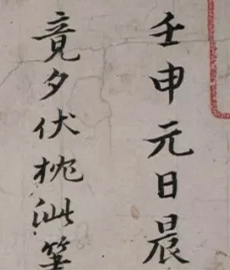 壬申元日晨
竟夕伏枕泚筆